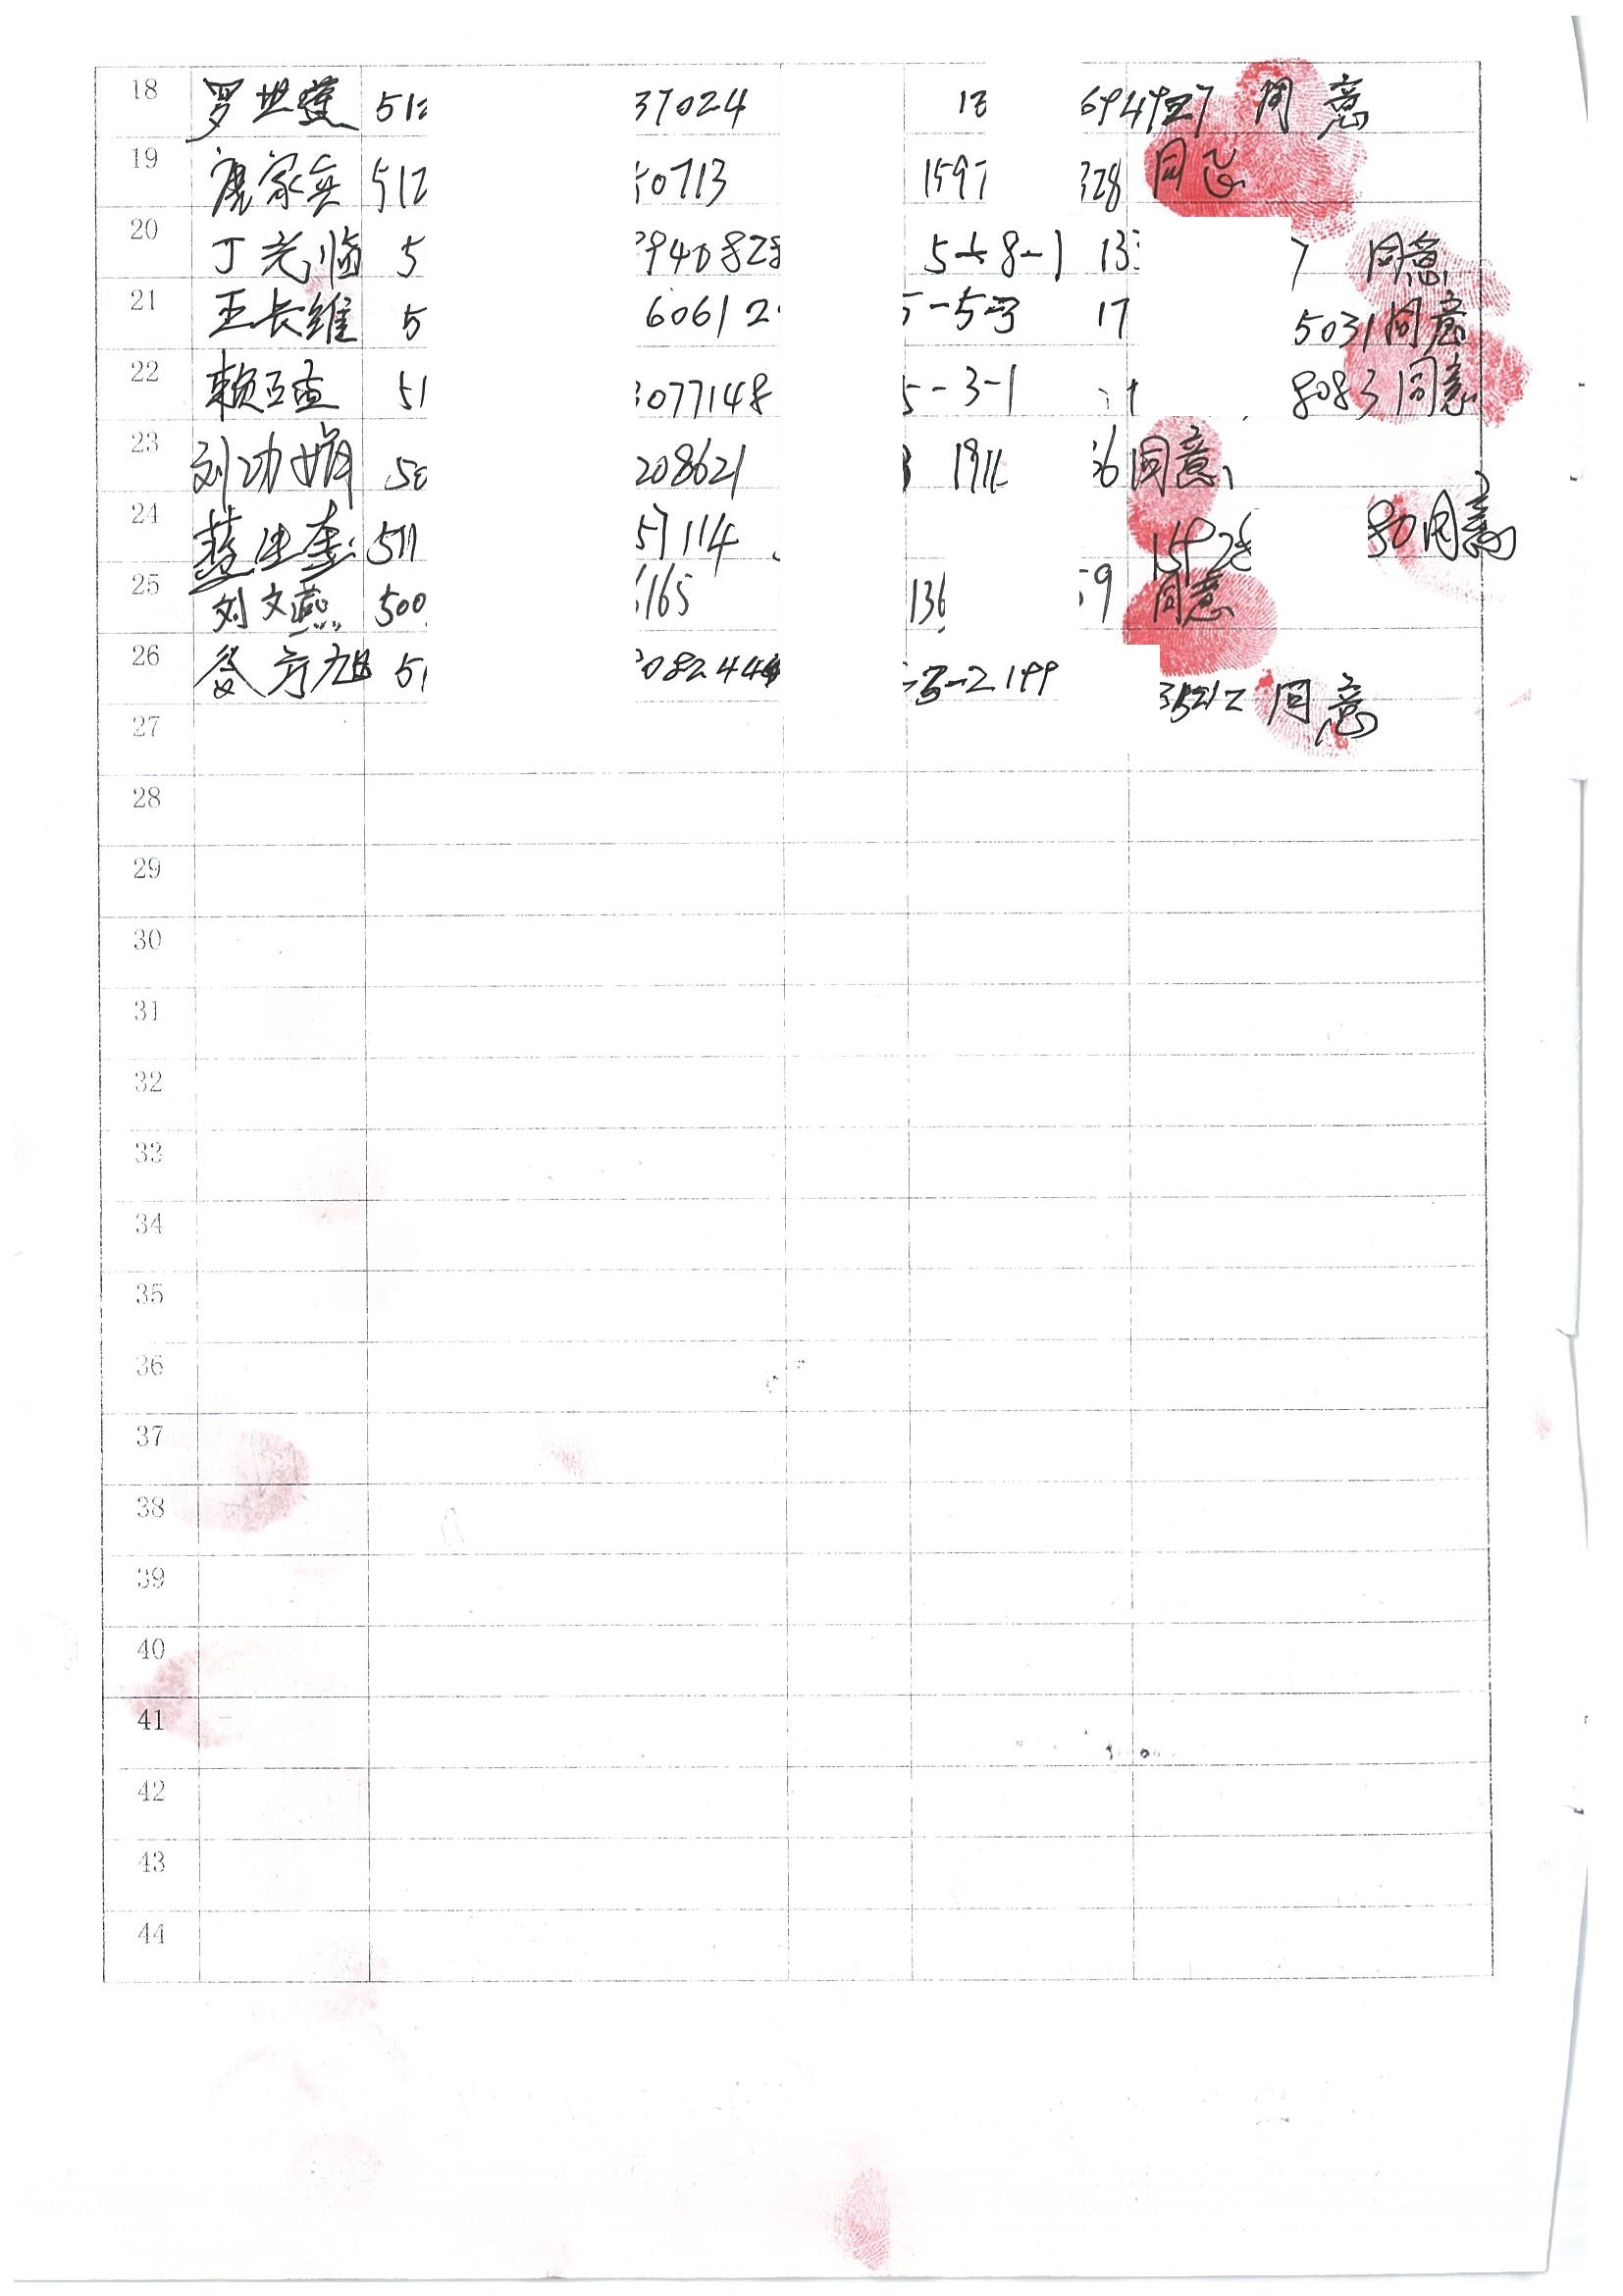 18 罗世莲 512 37024 13 694927 同意
19 家兵 512 50713 1597 328 同意
20 丁光临 5 9940828 5-8-1 13 7 同意
21 王长维 5 60612 5-5号 17 5031 同意
22 赖 51 3077148 5-3-1 8083 同意
23 刘功娟 50 208621 1911 6 同意
24 蓝 511 57114 1592 80 同意
25 刘文燕 500 6165 136 59 同意
26 方旭 51 08244 -3-2 199 35212 同意
27
28
29
30
31
32
33
34
35
36
37
38
39
40
41
42
43
44